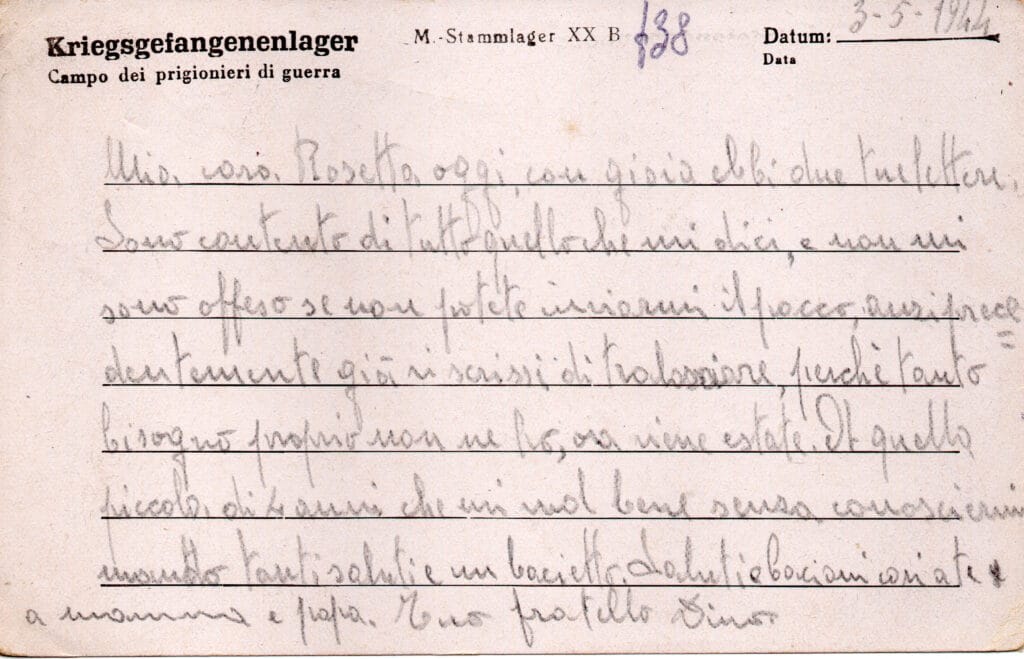 Kriegsgefangenenlager
Campo dei prigionieri di guerra
M.-Stammlager XX B
138
Datum: 3-5-1944
Data
Mia cara Rosetta oggi, con gioia ebbi due tue lettere.
Sono contento di tutto quello che mi dici, e non mi
sono offeso se non potete inviarmi il pacco, anzi prece=
dentemente già vi scrissi di tralasciare, perchè tanto
bisogno proprio non ne ho, ora viene estate. A quella
piccola di 4 anni che mi vol bene senza conoscermi
mando tanti saluti e un bacietto. Saluti e bacioni cari a te
a mamma e papa. Tuo fratello Dino.